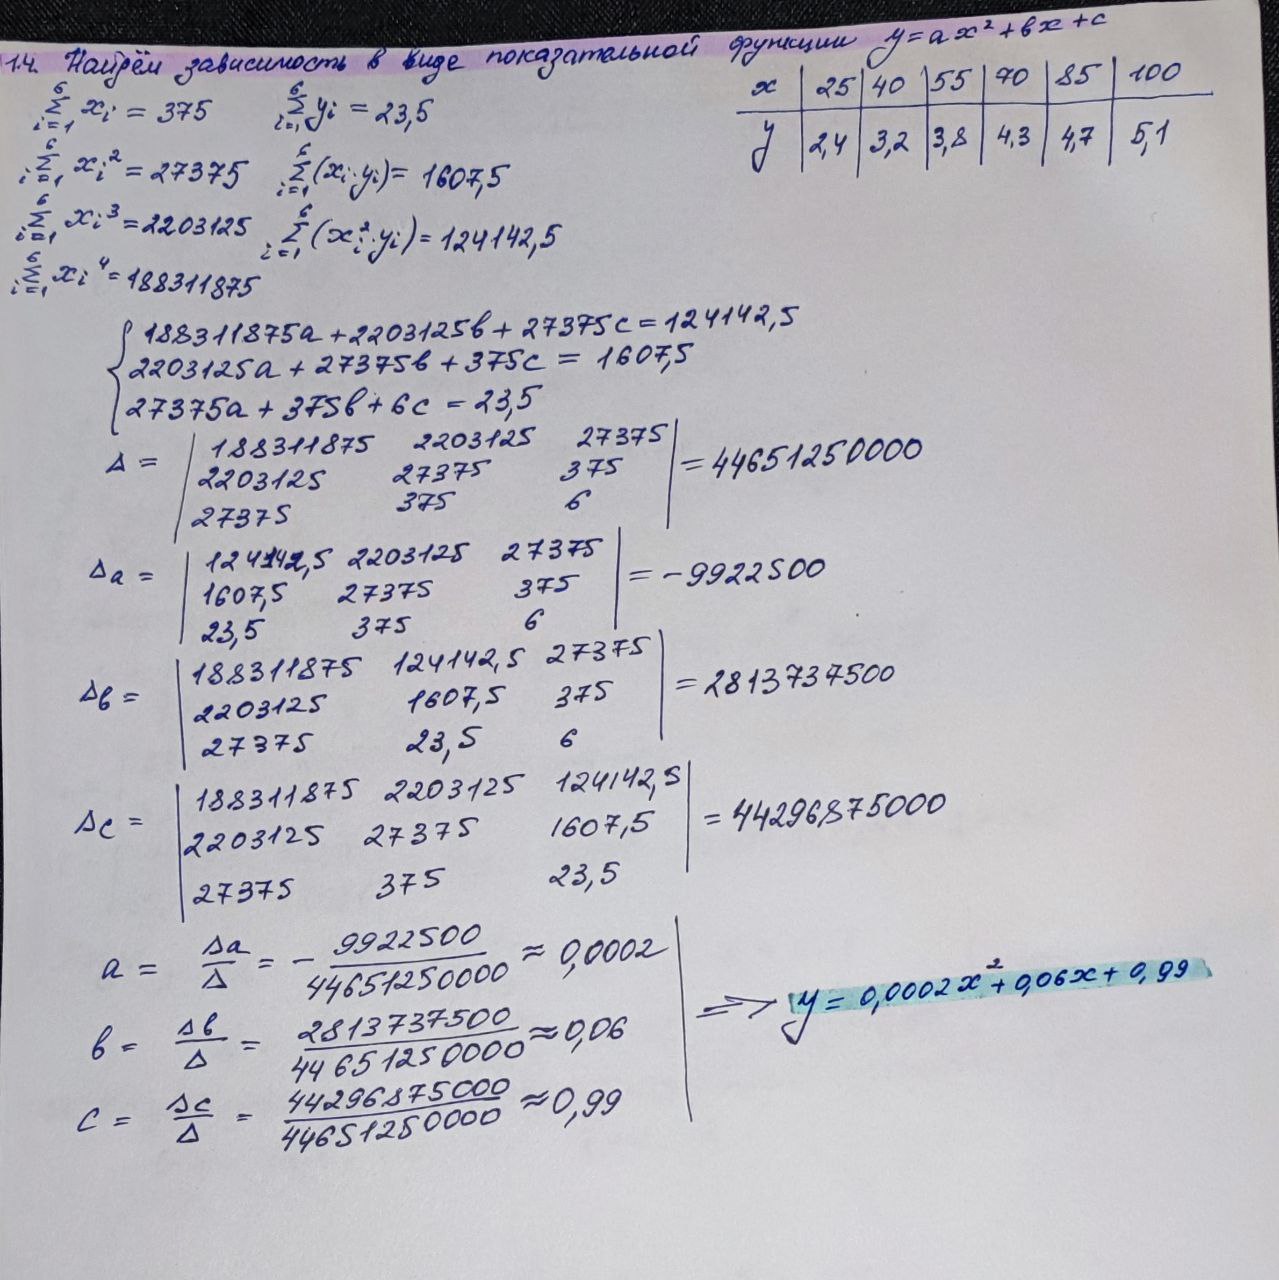 1.4. Найдём зависимость в виде показательной функции y = ax² + bx + c
x | 25 | 40 | 55 | 70 | 85 | 100
y | 2,4 | 3,2 | 3,8 | 4,3 | 4,7 | 5,1
6 Σ i=1 xᵢ = 375 6 Σ i=1 yᵢ = 23,5
6 Σ i=1 xᵢ² = 27375 6 Σ i=1 (xᵢ·yᵢ) = 1607,5
6 Σ i=1 xᵢ³ = 2203125 6 Σ i=1 (xᵢ²·yᵢ) = 124142,5
6 Σ i=1 xᵢ⁴ = 188311875
{ 188311875a + 2203125b + 27375c = 124142,5
2203125a + 27375b + 375c = 1607,5
27375a + 375b + 6c = 23,5
Δ = | 188311875 2203125 27375 | = 44651250000
2203125 27375 375
27375 375 6
Δa = | 124142,5 2203125 27375 | = -9922500
1607,5 27375 375
23,5 375 6
Δb = | 188311875 124142,5 27375 | = 2813737500
2203125 1607,5 375
27375 23,5 6
Δc = | 188311875 2203125 124142,5 | = 44296875000
2203125 27375 1607,5
27375 375 23,5
a = Δa/Δ = - 9922500/44651250000 ≈ 0,0002
b = Δb/Δ = 2813737500/44651250000 ≈ 0,06
c = Δc/Δ = 44296875000/44651250000 ≈ 0,99
⇒ y = 0,0002x² + 0,06x + 0,99